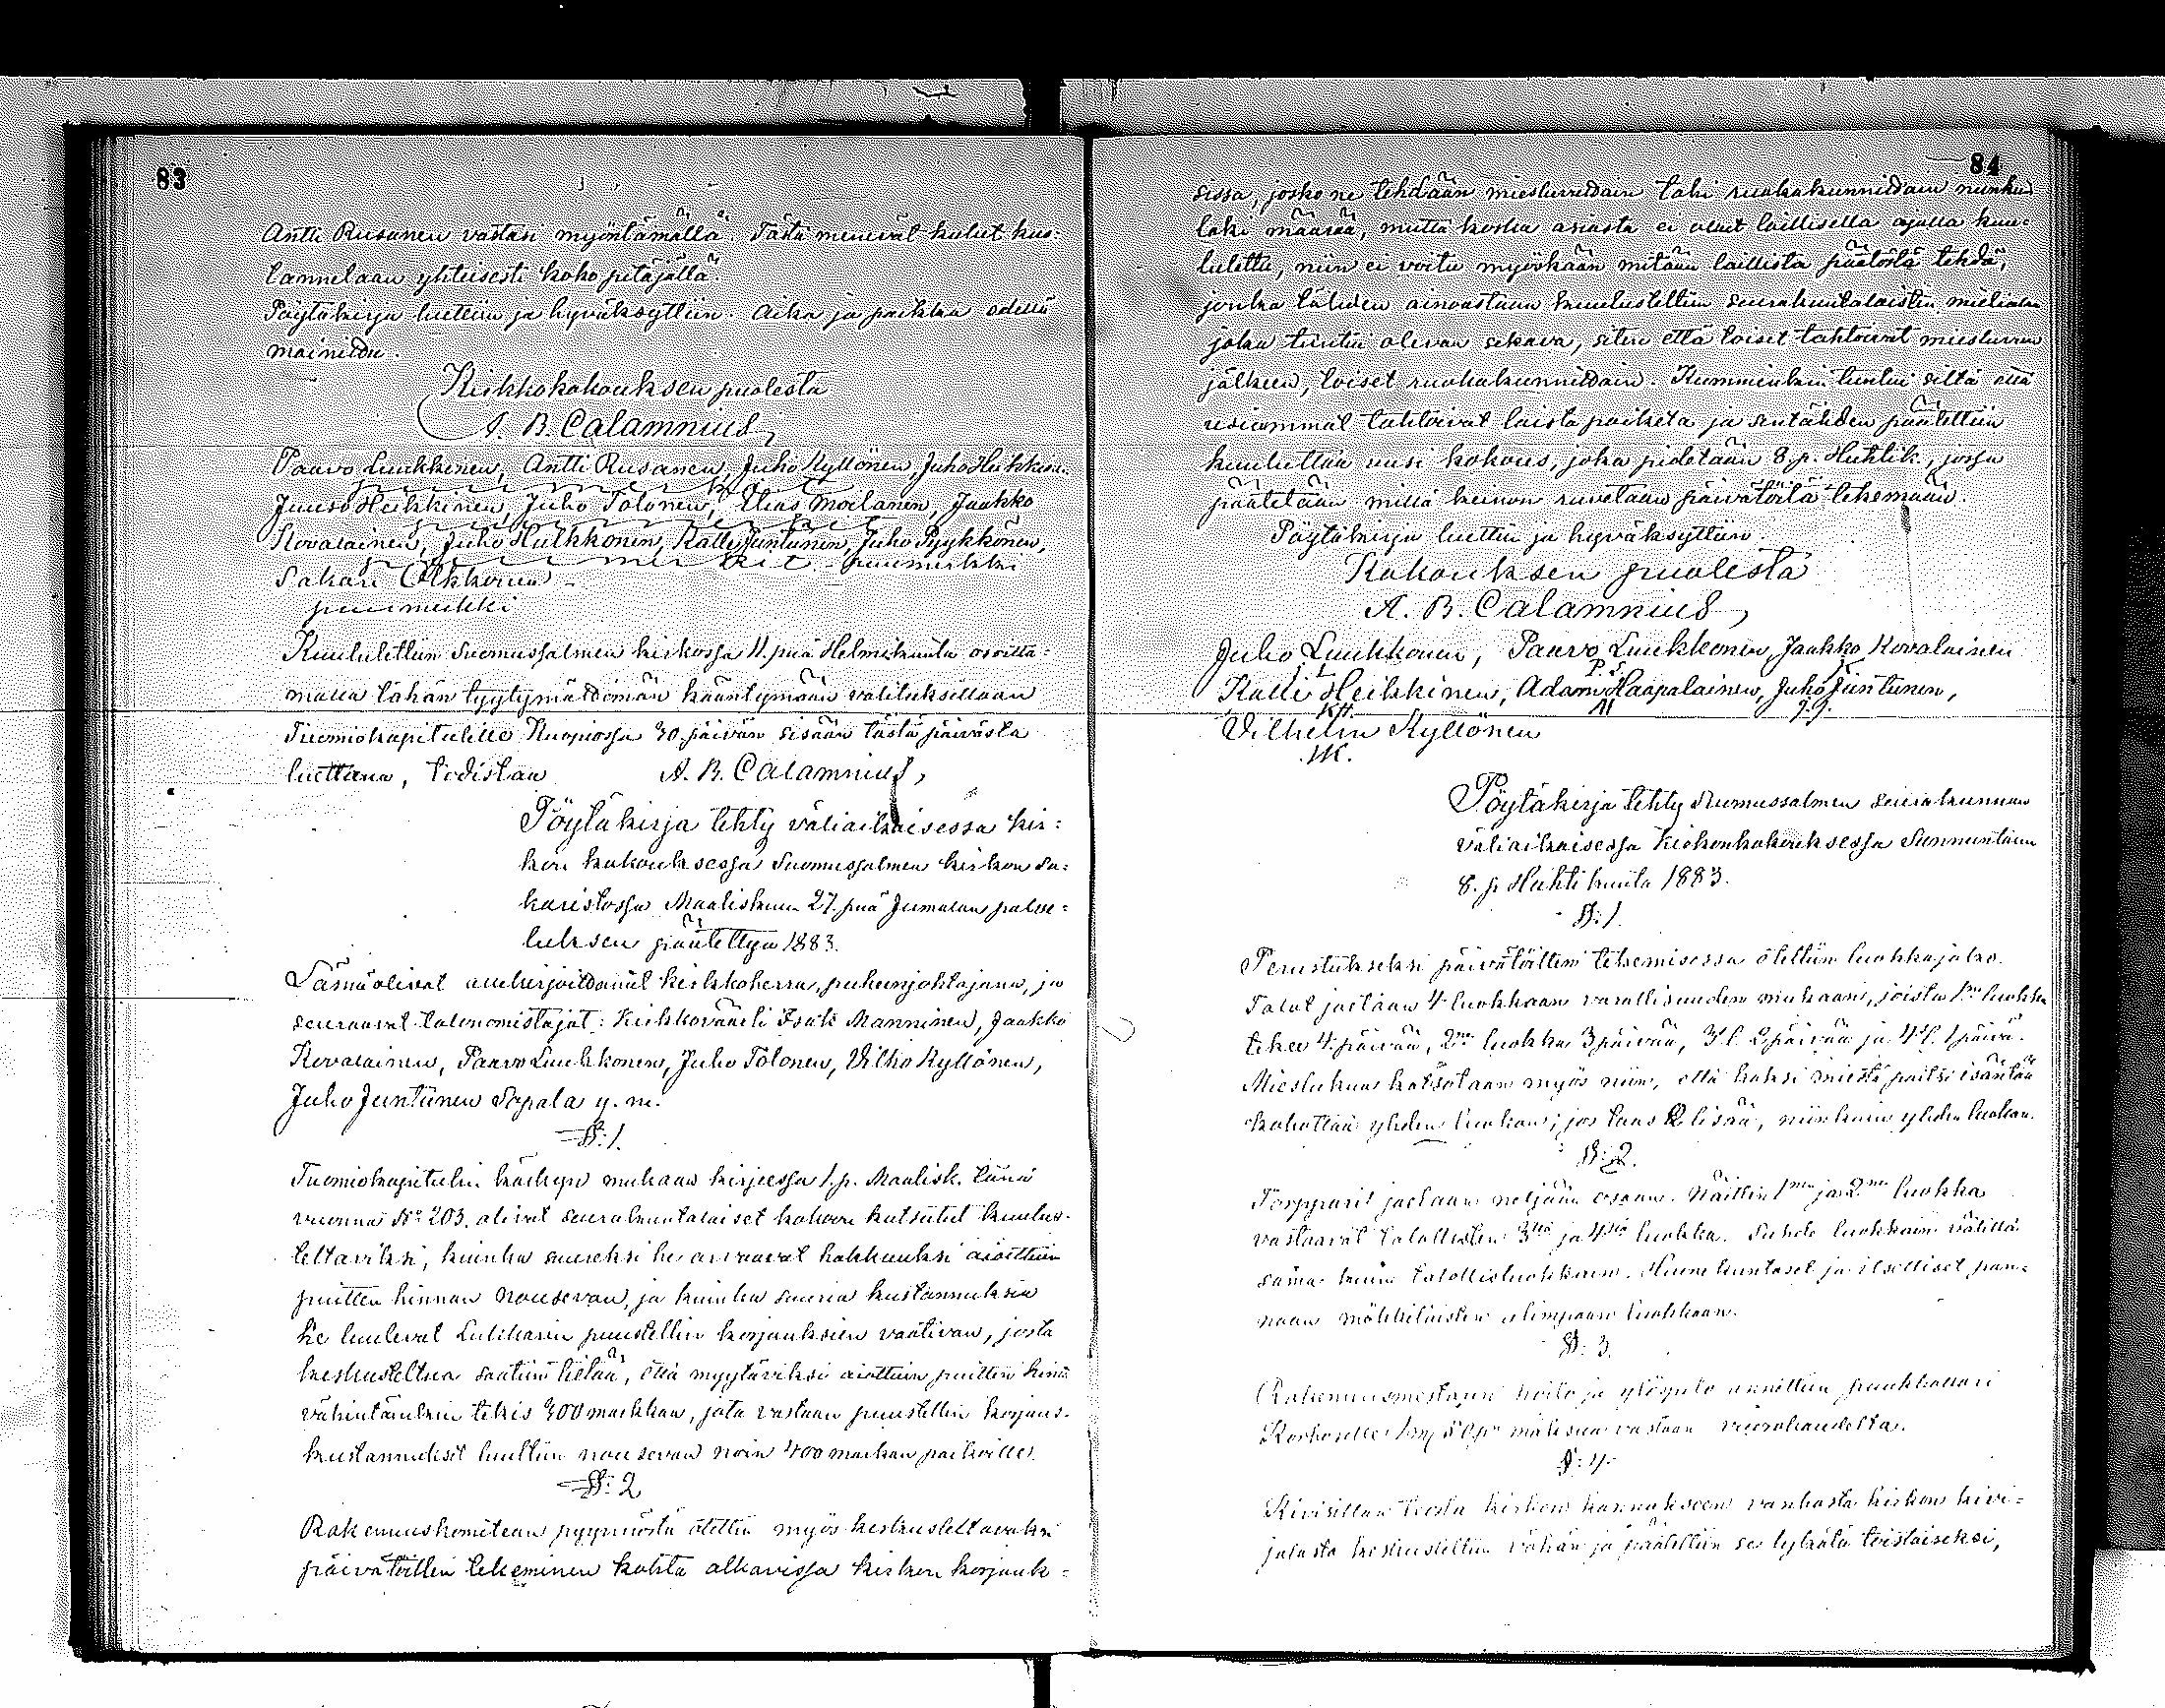 83
Antti Rusanen vastasi myöntämällä. Tästä menevät kulut kus-
tannetaan yhteisesti koko pitäjältä.
Pöytäkirja luettiin ja hyväksyttiin. Aika ja paikka edellä
mainittu.
Kirkkokokouksen puolesta
A. B. Calamnius,
Paavo Luukkinen, Antti Rusanen, Juho Kyllönen, Juho Heikkinen
puumerkit
Juuso Heikkinen, Juho Tolonen, Elias Moilanen, Jaakko
Kovalainen, Juho Hulkkonen, Kalle Juntunen, Juho Pyykkönen,
puumerkit puumerkki
Sakari Olkkonen
puumerkki
Kuulutettiin Suomussalmen kirkossa 11. pnä Helmikuuta osoitta-
malla tähän tyytymättömän kääntymään valituksillaan
Tuomiokapitulille Kuopiossa 30 päivän sisään tästä päivästä
luettuna, todistaa A. B. Calamnius,
Pöytäkirja tehty väliaikaisessa kir:
kon kokouksessa Suomussalmen kirkon sa:
karistossa Maaliskuun 27. pnä Jumalan palve:
luksen päätettyä 1883.
Läsnä olivat allekirjoittanut kirkkoherra, puheenjohtajana, ja
seuraavat talonomistajat: Kirkkoväärti Isak Manninen, Jaakko
Kovalainen, Paavo Luukkonen, Juho Tolonen, Vilho Kyllönen,
Juho Juntunen Sopala y. m.
§: 1.
Tuomiokapitulin käskyn mukaan kirjeessä 1. p. Maalisk. tänä
vuonna No 203. olivat seurakuntalaiset kokoon kutsutut kuulus-
teltaviksi, kuinka suureksi he arvaavat hakkuuksi aiottuin
puitten hinnan nousevan, ja kuinka suuria kustannuksia
he luulevat Lukkarin puustellin korjauksien vaativan, josta
keskusteltua saatiin tietää, että myytäviksi aiottuin puitten hinta
vähintäinkin tekis 300 markkaa, jota vastaan puustellin korjaus-
kustannukset luultiin nousevan noin 400 markan paikoille.
§: 2
Rakennuskomitean pyynnöstä otettiin myös keskusteltavaksi
päivätöitten tekeminen kohta alkavissa kirkon korjauk-
84
sissa, josko ne tehdään miesluvuttain tahi ruokakunnittain niinkuin
laki määrää, mutta koska asiasta ei oltu laillisella ajalla kuu-
lutettu, niin ei voitu myöskään mitään laillista päätöstä tehdä,
jonka tähden ainoastaan kuulusteltiin seurakuntalaisten mielialaa
joka tuntui olevan sekava, siten että toiset tahtoivat miesluvun
jälkeen, toiset ruokakunnittain. Kumminkin tuntui siltä että
useammat tahtoivat laista poiketa ja sentähden päätettiin
kuuluttaa uusi kokous, joka pidetään 8. p. Huhtik., jossa
päätetään millä keinon ruvetaan päivätöitä tekemään.
Pöytäkirja luettiin ja hyväksyttiin.
Kokouksen puolesta
A. B. Calamnius,
Juho Luukkonen, Paavo Luukkonen, Jaakko Kovalainen
Kalle Heikkinen, Adam Haapalainen, Juho Juntunen,
KH. AH J.J.
Vilhelm Kyllönen
VK.
Pöytäkirja tehty Suomussalmen seurakunnan
väliaikaisessa Kirkonkokouksessa Sunnuntaina
8. p Huhtikuuta 1883.
§: 1.
Perustukseksi päivätöitten tekemisessä otettiin luokkajako.
Talot jaetaan 4 luokkaan varallisuuden mukaan, joista 1nen luokka
tekee 4 päivää, 2nen luokka 3 päivää, 3. l. 2 päivää ja 4. l. 1 päivä.
Miesluku katsotaan myös niin, että kaksi miestä paitsi isäntää
kohottaa yhden luokan; jos taas 2 lisää, niinkuin yhden luokan.
§: 2.
Torpparit jaetaan neljään osaan. Näitten 1nen ja 2nen luokka
vastaavat talollisten 3tta ja 4ttä luokka. Suhde luokkain välillä
sama kuin talollisluokkain. Huonekuntaset ja itselliset pan-
naan mökkiläisten alimpaan luokkaan.
§: 3.
Rakennusmestarin hoito ja ylöspito annettiin puukhollari
Korhoselle 1 m 50 p:n maksua vastaan vuorokaudelta.
§: 4.
Kivisillan teosta kirkon kannukseen vanhasta kirkon kivi-
jalasta keskusteltiin vähän ja päätettiin se lykätä toistaiseksi,